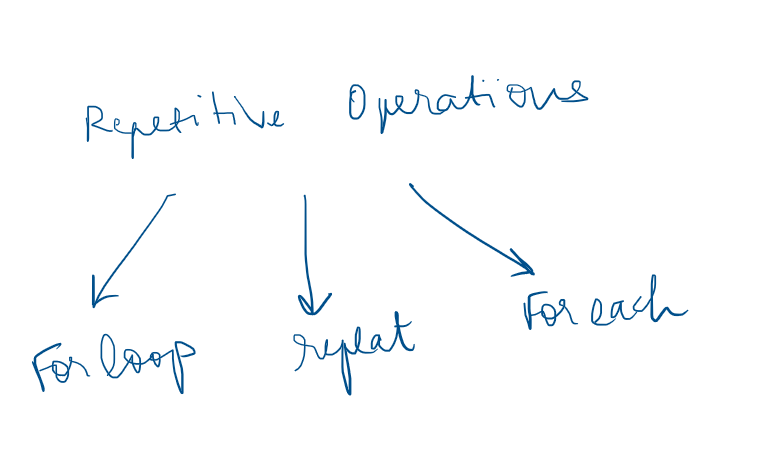 Repetitive Operations
For loop repeat For each